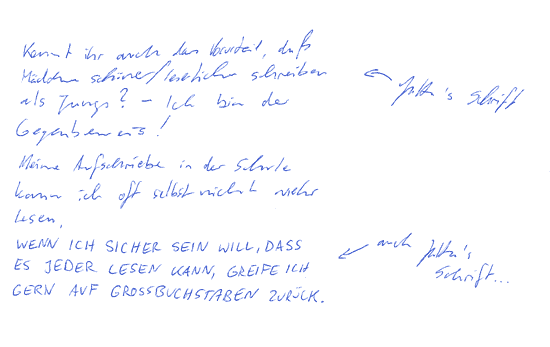 Kennt ihr auch das Vorurteil, daß
Mädchen schöner/leserlicher schreiben
als Jungs? – Ich bin der
Gegenbeweis!
Meine Aufschriebe in der Schule
kann ich oft selbst nicht mehr
lesen,
WENN ICH SICHER SEIN WILL, DASS
ES JEDER LESEN KANN, GREIFE ICH
GERN AUF GROSSBUCHSTABEN ZURÜCK.
← Jutta's Schrift
← auch Jutta's
Schrift...